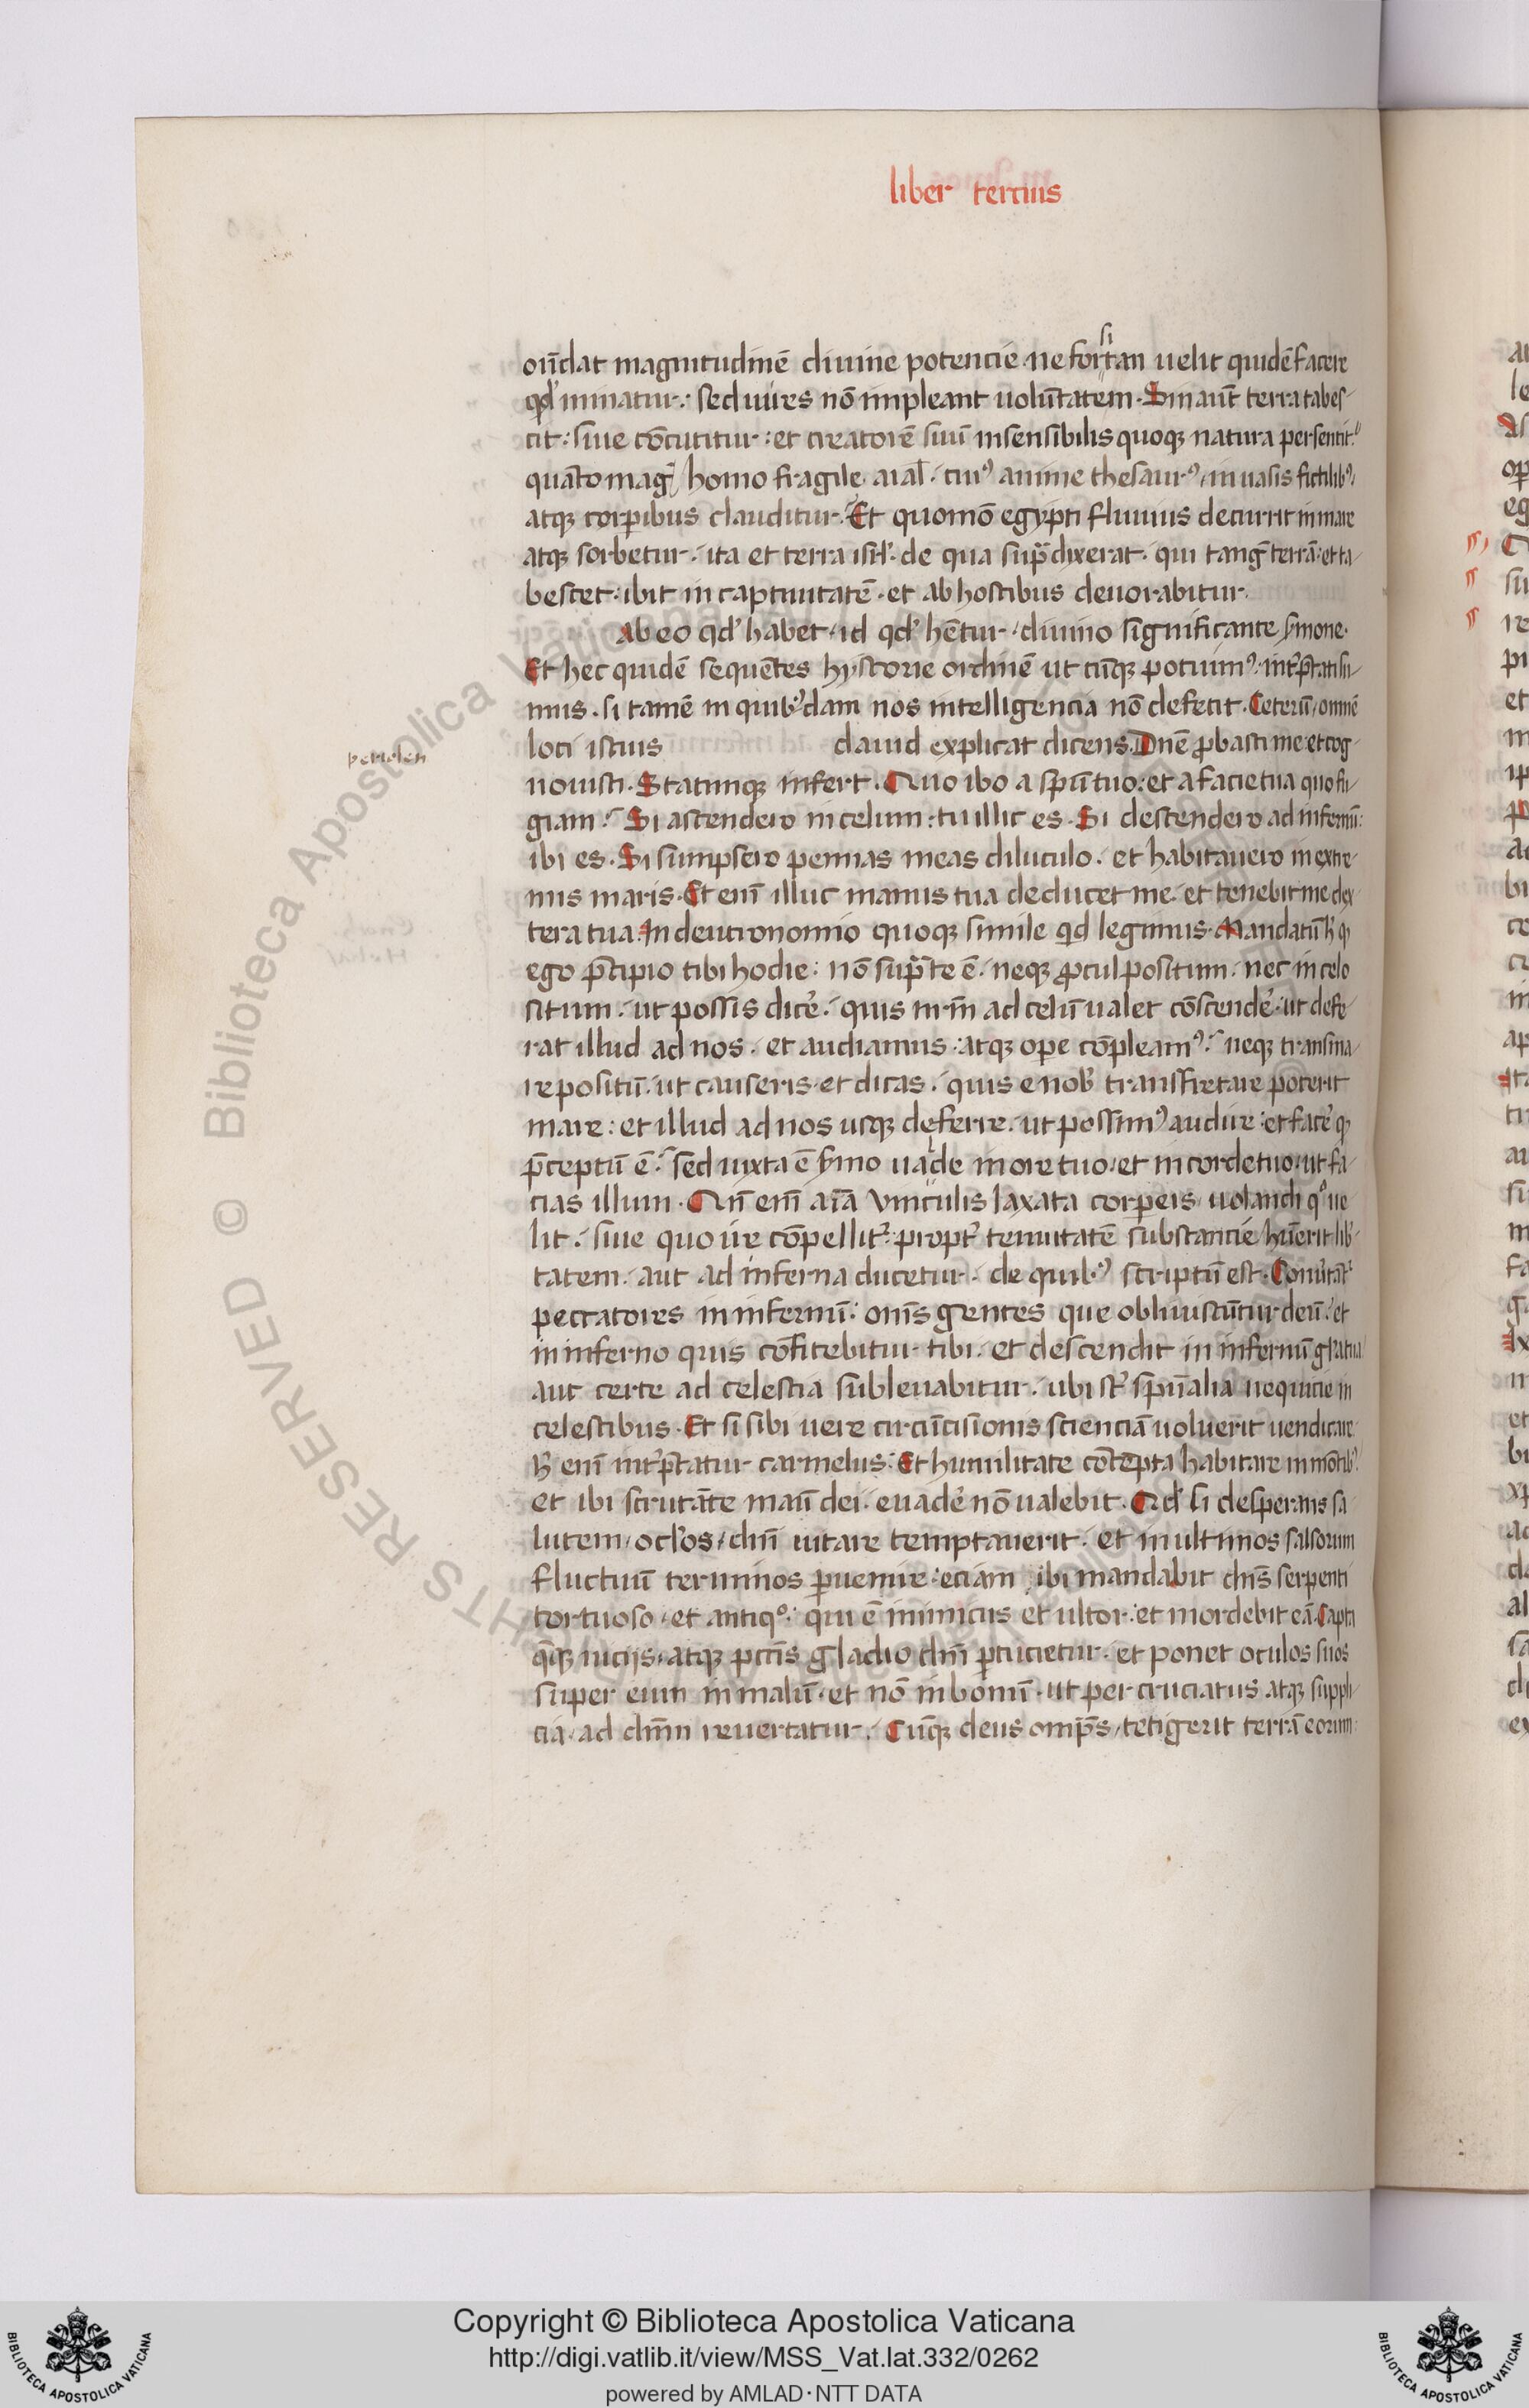 liber tercius
oñdat magnitudinē diuine potencie · ne forsitan uelit quidē facere
qd' minatur : sed uires nō impleant uolūtatem · Sin aut̄ terra tabes-
cit : siue cōcutitur : et creatorē suū insensibilis quoqꝫ natura persentit :
quāto mag̃ homo fragile aīal · cuiꝰ anime thesaurꝰ in uasis fictilibꝰ
atqꝫ corꝑibus clauditur · Et quomō egypti fluuius decurrit in mare
atqꝫ sorbetur · ita et terra isrl' · de qua sup̃dixerat · qui tang̃ terrā : et ta-
bescet : ibit in captiuitatē · et ab hostibus deuorabitur ·
Ab eo qd' habet · id qd' hētur · diuino significante ẜmone ·
Et hec quidē sequētes hystorie ordinē ut cūqꝫ potuimꝰ : int̃p̃tati su-
mus · si tamē in quibꝰdam nos intelligencia nō defecit · Ceterū omnē
loci istius dauid explicat dicens · Dn̄e ꝓbasti me : et cog-
pertolen
nouisti · Statimqꝫ infert · Quo ibo a sp̄u tuo : et a facie tua quo fu-
giam : Si ascendero in celum : tu illic es · Si descendero ad infernū :
ibi es · Si sumpsero pennas meas diluculo · et habitauero in extre-
mis maris · Et enī illuc manus tua deducet me · et tenebit me dex-
tera tua · In deutronomio quoqꝫ simile qid legimus · Mandatū h' q
ego p̄cipio tibi hodie : nō sup̃ te ē · neqꝫ ꝓcul positum · nec in celo
situm · ut possis dicē · quis nr̄m ad celū ualet cōscendē · ut defe-
rat illud ad nos · et audiamus : atqꝫ oꝑe cōpleamꝰ : neqꝫ transma-
re positū · ut causeris et dicas · quis e nob' transfretare poterit
mare : et illud ad nos usqꝫ deferre · ut possimꝰ audire : et facē q
p̄ceptū ē : sed iuxta ē ẜmo ualde in ore tuo : et in corde tuo : ut fa-
cias illum · Qn̄ enī aīa vinculis laxata corꝑeis uolandi qͦ ue-
lit · siue quo ire cōpellit̃ : propt̃ tenuitatē substancie hūerit lib'-
tatem · aut ad inferna ducetur · de quibꝰ scriptū est · Conu̓tāt̃
peccatores in infernū : om̄s gentes que obliuiscūtur deū : et
in inferno quis cōfitebitur tibi · et descendit in infernū gl'atur
aut certe ad celestia subleuabitur · ubi st̃ sp̄ualia nequicie in
celestibus · Et si sibi uere circūcisionis scienciā uoluerit uendicare
h' enī int̃p̃tatur carmelus : Et humilitate cōtēpta habitare in mōtibꝰ
et ibi scrutāte manū dei · euadē nō ualebit · Qd' si desperans sa-
lutem ocl'os dn̄i uitare temptauerit · et in ultimos salsorum
fluctuū terminos ꝑuenire : eciam ibi mandabit dn̄s serpenti
tortuoso et antiqͦ : qui ē inimicus et ultor : et mordebit eā · Capti
q̄qꝫ uicijs atqꝫ pctīs gladio dn̄i ꝑcucietur · et ponet oculos suos
super eum in malū · et nō in bonū · ut per cruciatus atqꝫ suppli-
cia · ad dn̄m reuertatur · Cūqꝫ deus omp̄s tetigerit terrā eorum
Copyright © Biblioteca Apostolica Vaticana
http://digi.vatlib.it/view/MSS_Vat.lat.332/0262
powered by AMLAD·NTT DATA